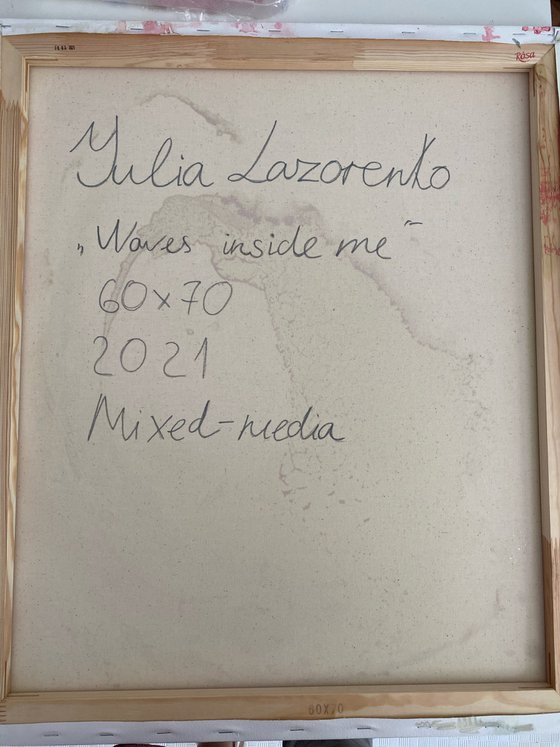 Rosa
Yulia Lazorenko
„Waves inside me“
60x70
2021
Mixed-media
60X70